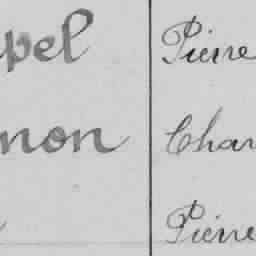 pel Pierre
non Char
Pierre